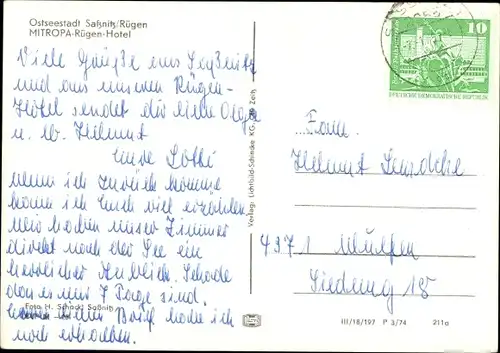 Ostseestadt Saßnitz/Rügen
MITROPA-Rügen-Hotel
Viele Grüße aus Saßnitz
und aus unserm Rügen-
Hotel sendet dir liebe
u. lb. Helmut
Eure Lotti
wenn ich zurück komme
kann ich Euch viel erzählen
wir haben unser Zimmer
direkt nach der See ein
herrlicher Anblick. Schade
das es nur 7 Tage sind.
Brief habe ich
noch erhalten.
Foto H. Schadt Saßnitz
Verlag: Lichtbild-Schincke KG, Zeitz
10
DEUTSCHE DEMOKRATISCHE REPUBLIK
Fam.
Helmut
4971 Wülfen
Siedlung 18
III/18/197 P 3/74 211a